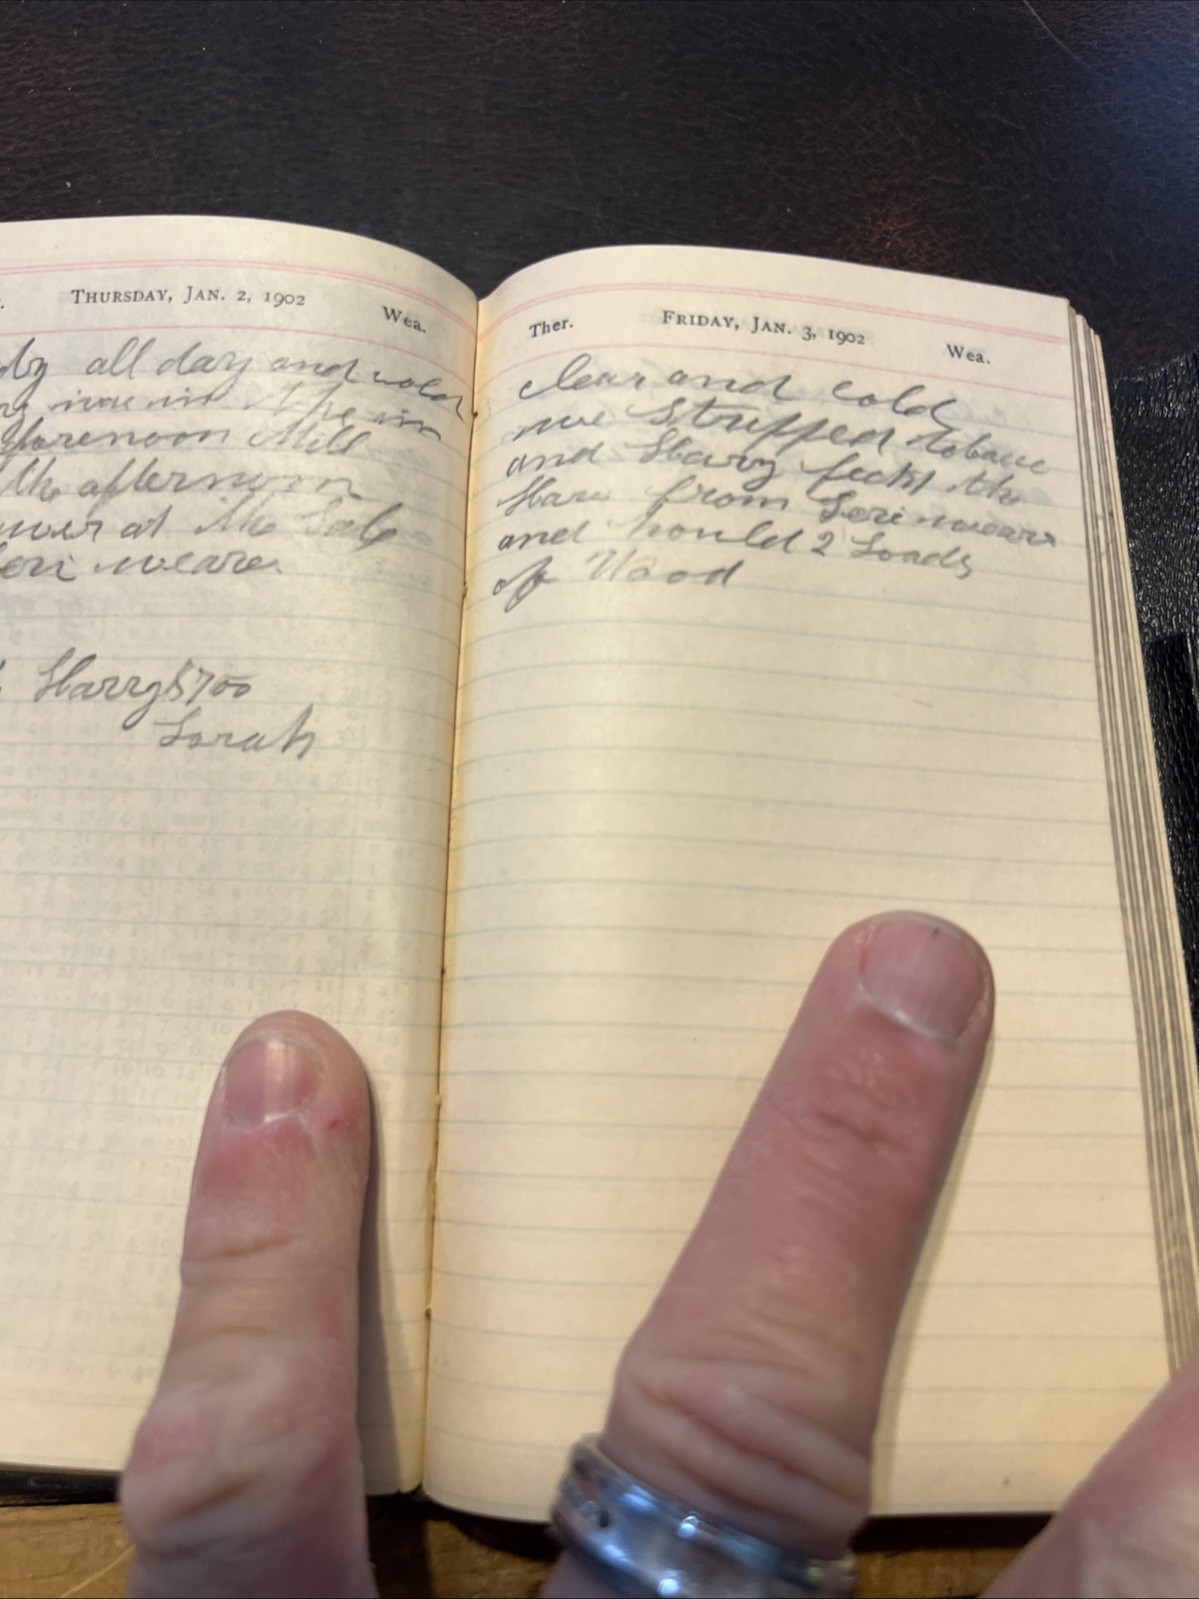 THURSDAY, JAN. 2, 1902
Wea.
all day and cold
in the in
forenoon Mill
the afternoon
at the Sale
weare
Harry $700
Sarah
Ther.
FRIDAY, JAN. 3, 1902
Wea.
clear and cold
we Stripped tobacc
and Harry fecht the
from Seri weare
and hould 2 Loads
of Wood